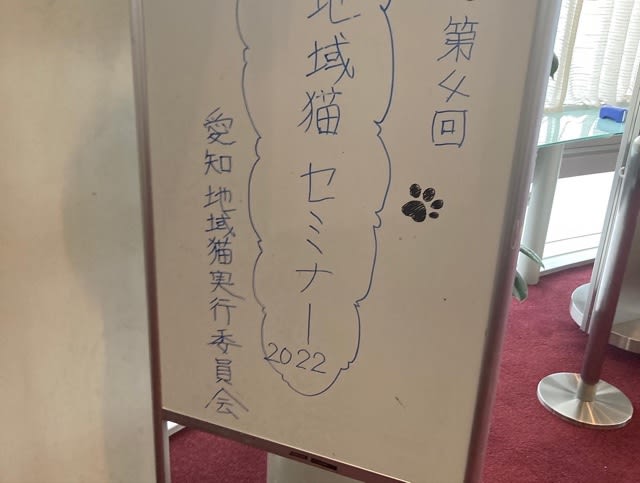 第4回
地域猫セミナー
2022
愛知地域猫実行委員会